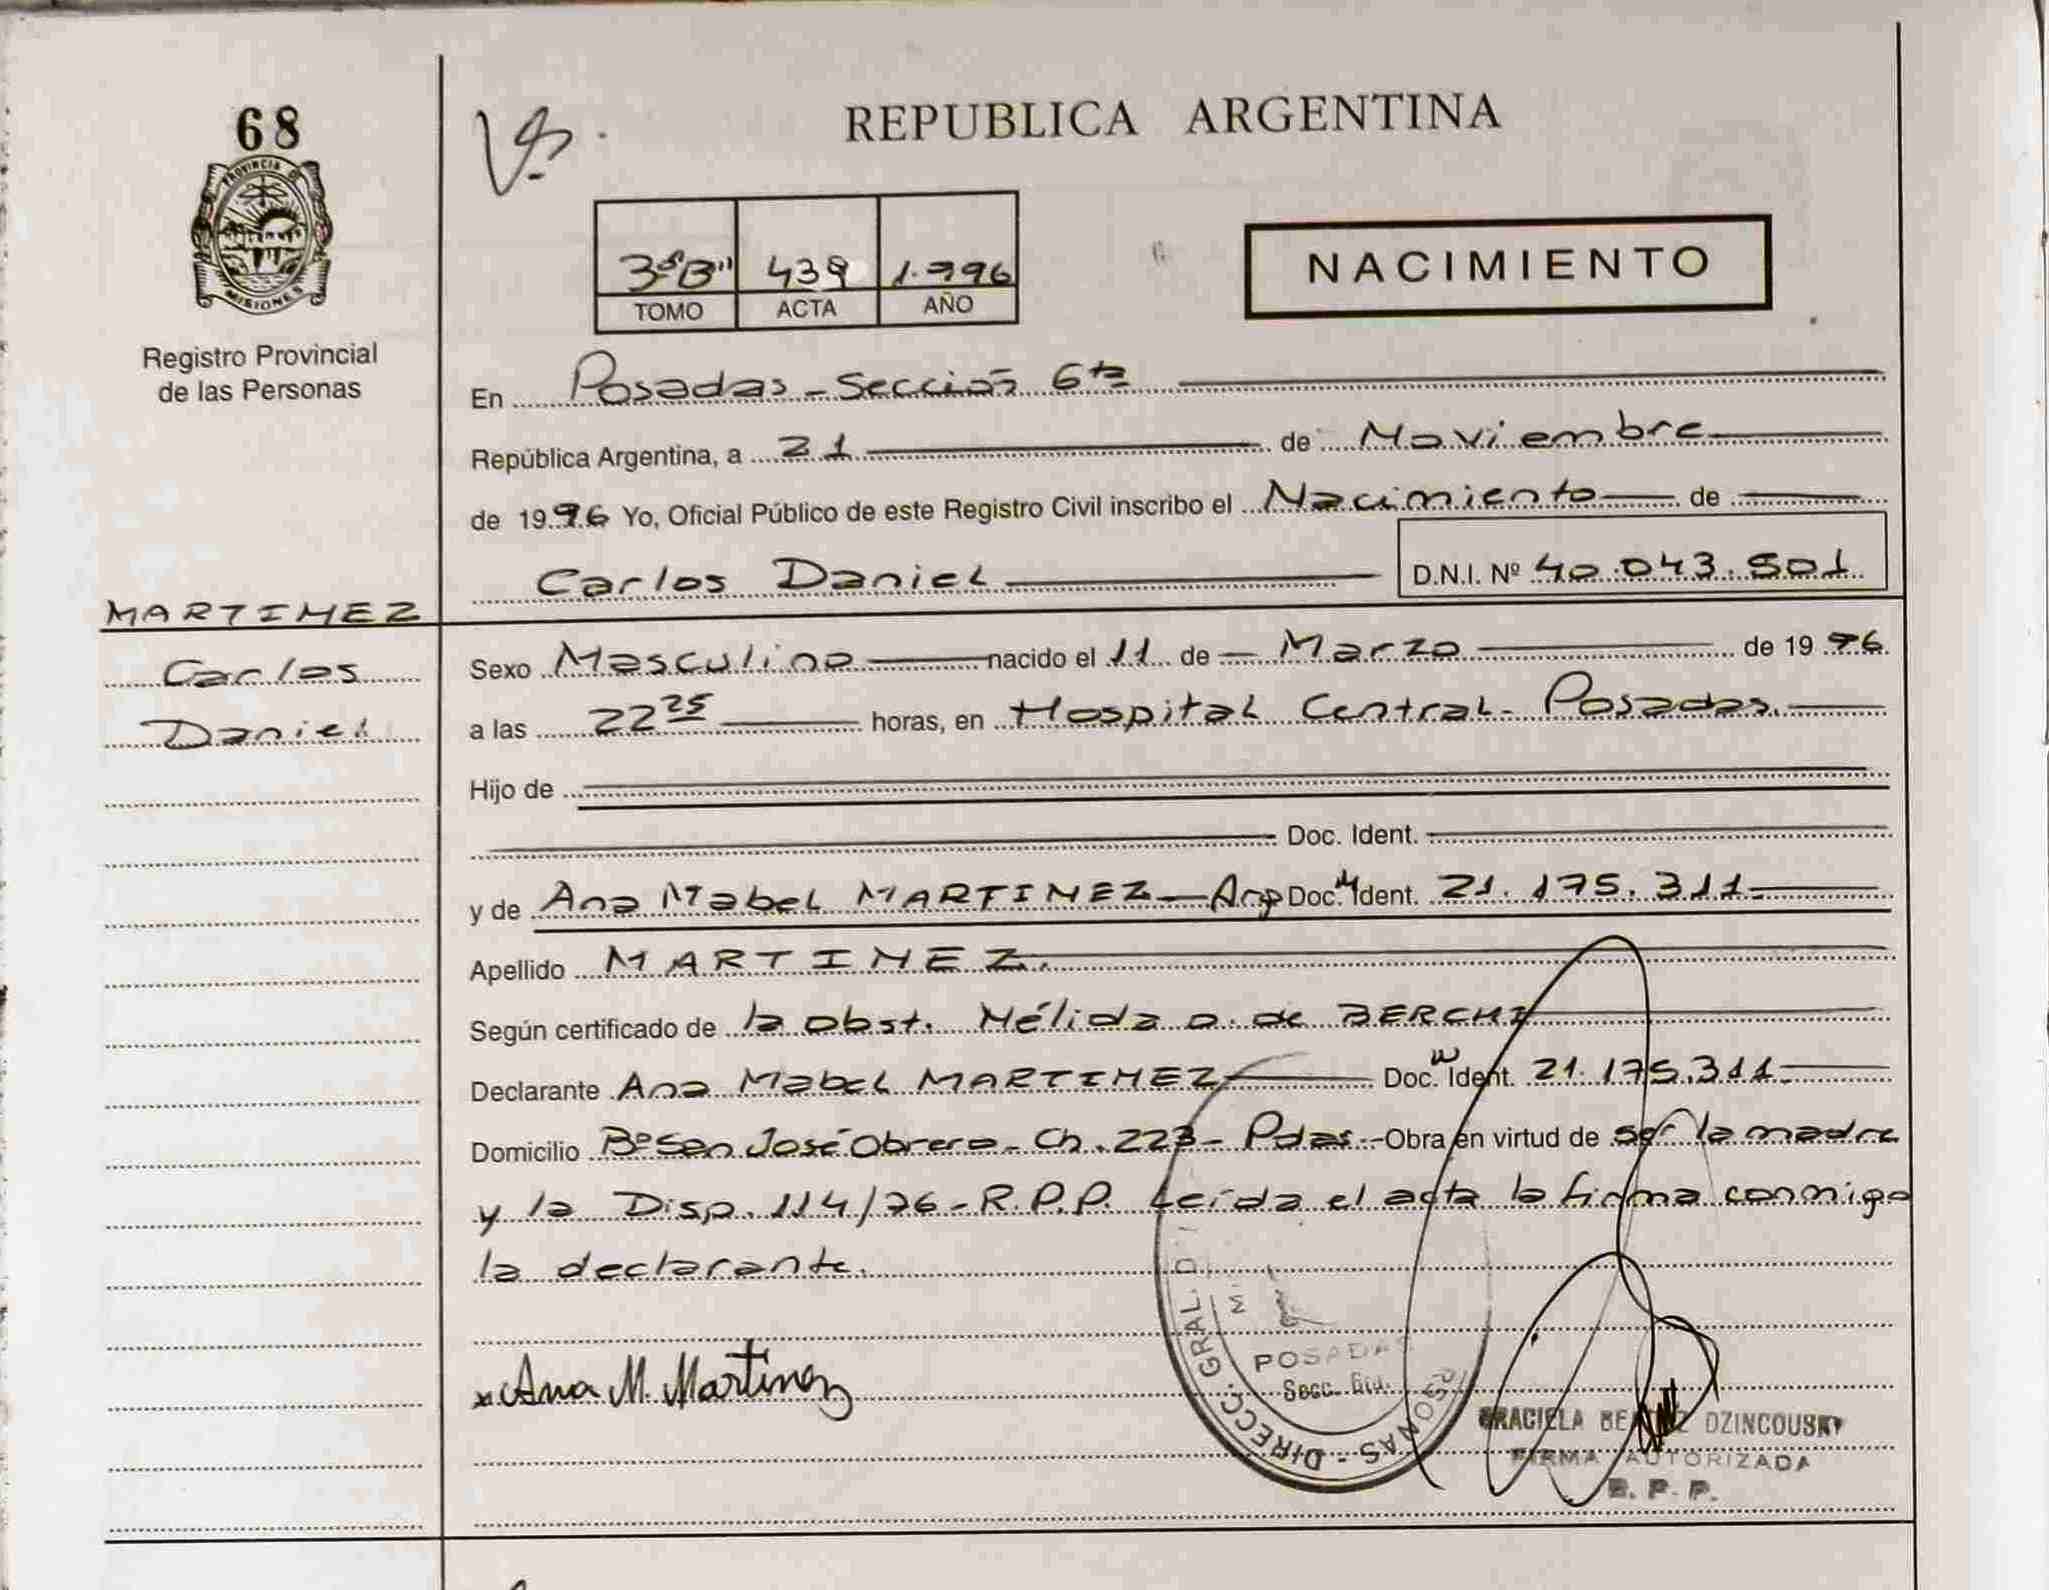 68
PROVINCIA D
MISIONES
Registro Provincial
de las Personas
REPUBLICA ARGENTINA
3º"B" 439 1.996
TOMO ACTA AÑO
NACIMIENTO
En Posadas - Sección 6ta
República Argentina, a 21 de Noviembre
de 1996 Yo, Oficial Público de este Registro Civil inscribo el Nacimiento de
Carlos Daniel D.N.I. Nº 40.043.501
MARTINEZ
Carlos
Daniel
Sexo Masculino nacido el 11 de Marzo de 1996
a las 22 25 horas, en Hospital Central - Posadas.
Hijo de
Doc. Ident.
y de Ana Mabel MARTINEZ - Arg Doc. Ident. 21.175.311
Apellido MARTINEZ.
Según certificado de la obst. Nélida O. de BERCHI
Declarante Ana Mabel MARTINEZ Doc. Ident. 21.175.311.
Domicilio Bº San José Obrero - Ch. 223 - Pdas - Obra en virtud de ser la madre
y la Disp. 114/96 - R.P.P. Leída el acta la firma conmigo
la declarante.
Ana M. Martinez
DIRECC. GRAL. D
POSADAS
Secc.
SONAS
GRACIELA DZINCOUSKY
FIRMA AUTORIZADA
R. P. P.